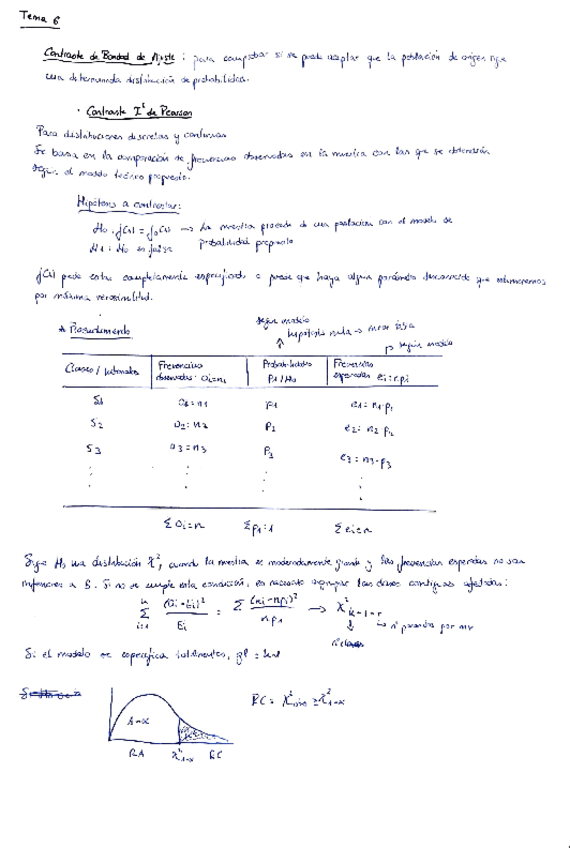 Tema 6
Contraste de Bondad de Ajuste : para comprobar si se puede aceptar que la población de origen sigue
una determinada distribución de probabilidades.
· Contraste χ² de Pearson
Para distribuciones discretas y continuas
Se basa en la comparación de frecuencias observadas en la muestra con las que se obtendrían
según el modelo teórico propuesto.
Hipótesis a contrastar:
H0: f(x) = f0(x) → La muestra procede de una población con el modelo de
probabilidad propuesto
H1: H0 es falsa
f(x) puede estar completamente especificado o puede que haya algún parámetro desconocido que estimaremos
por máxima verosimilitud.
* Procedimiento
según modelo
hipótesis nula →
según modelo
Clases / Intervalos
Frecuencias observadas: Oi=ni
Probabilidades Pi/H0
Frecuencias esperadas ei=npi
S1 O1=n1 P1 e1=n1·p1
S2 O2=n2 P2 e2=n2 p2
S3 O3=n3 P3 e3=n3·p3
ΣOi=n Σpi=1 Σei=n
Sigue H0 una distribución χ², cuando la muestra es moderadamente grande y las frecuencias esperadas no son
inferiores a 5. Si no se cumple esta condición, es necesario agrupar las clases contiguas afectadas:
k Σ i=1 (Oi-Ei)² / Ei = Σ (ni-npi)² / npi → χ² k-1-r
nº parámetros por mv
nº clases
Si el modelo se especifica totalmente, gl = k-1
1-α
RC = χ² ≥ χ² 1-α
RA χ² 1-α RC